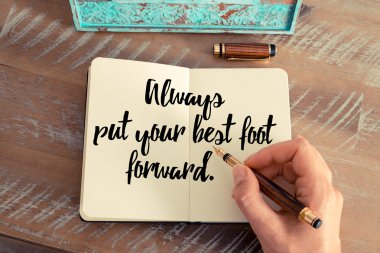 Always
put your best foot
forward.